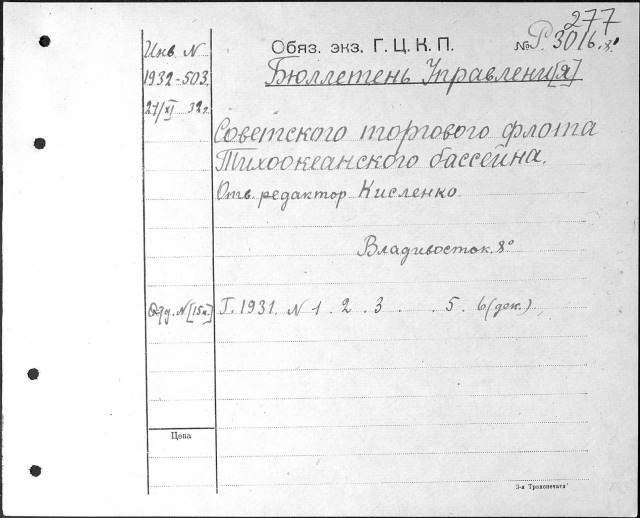 277
Инв. N
Обяз. экз. Г. Ц. К. П.
№ Р. 30/6. 8°
1932-503.
Бюллетень Управлени[я]
27/XI 32 г.
Советского торгового флота
Тихоокеанского бассейна.
Отв. редактор Кисленко.
Владивосток. 8°
N [15к.] Г. 1931. N 1 . 2 . 3 . . 5 . 6 (дек.).
Цена
3-я Транспечати